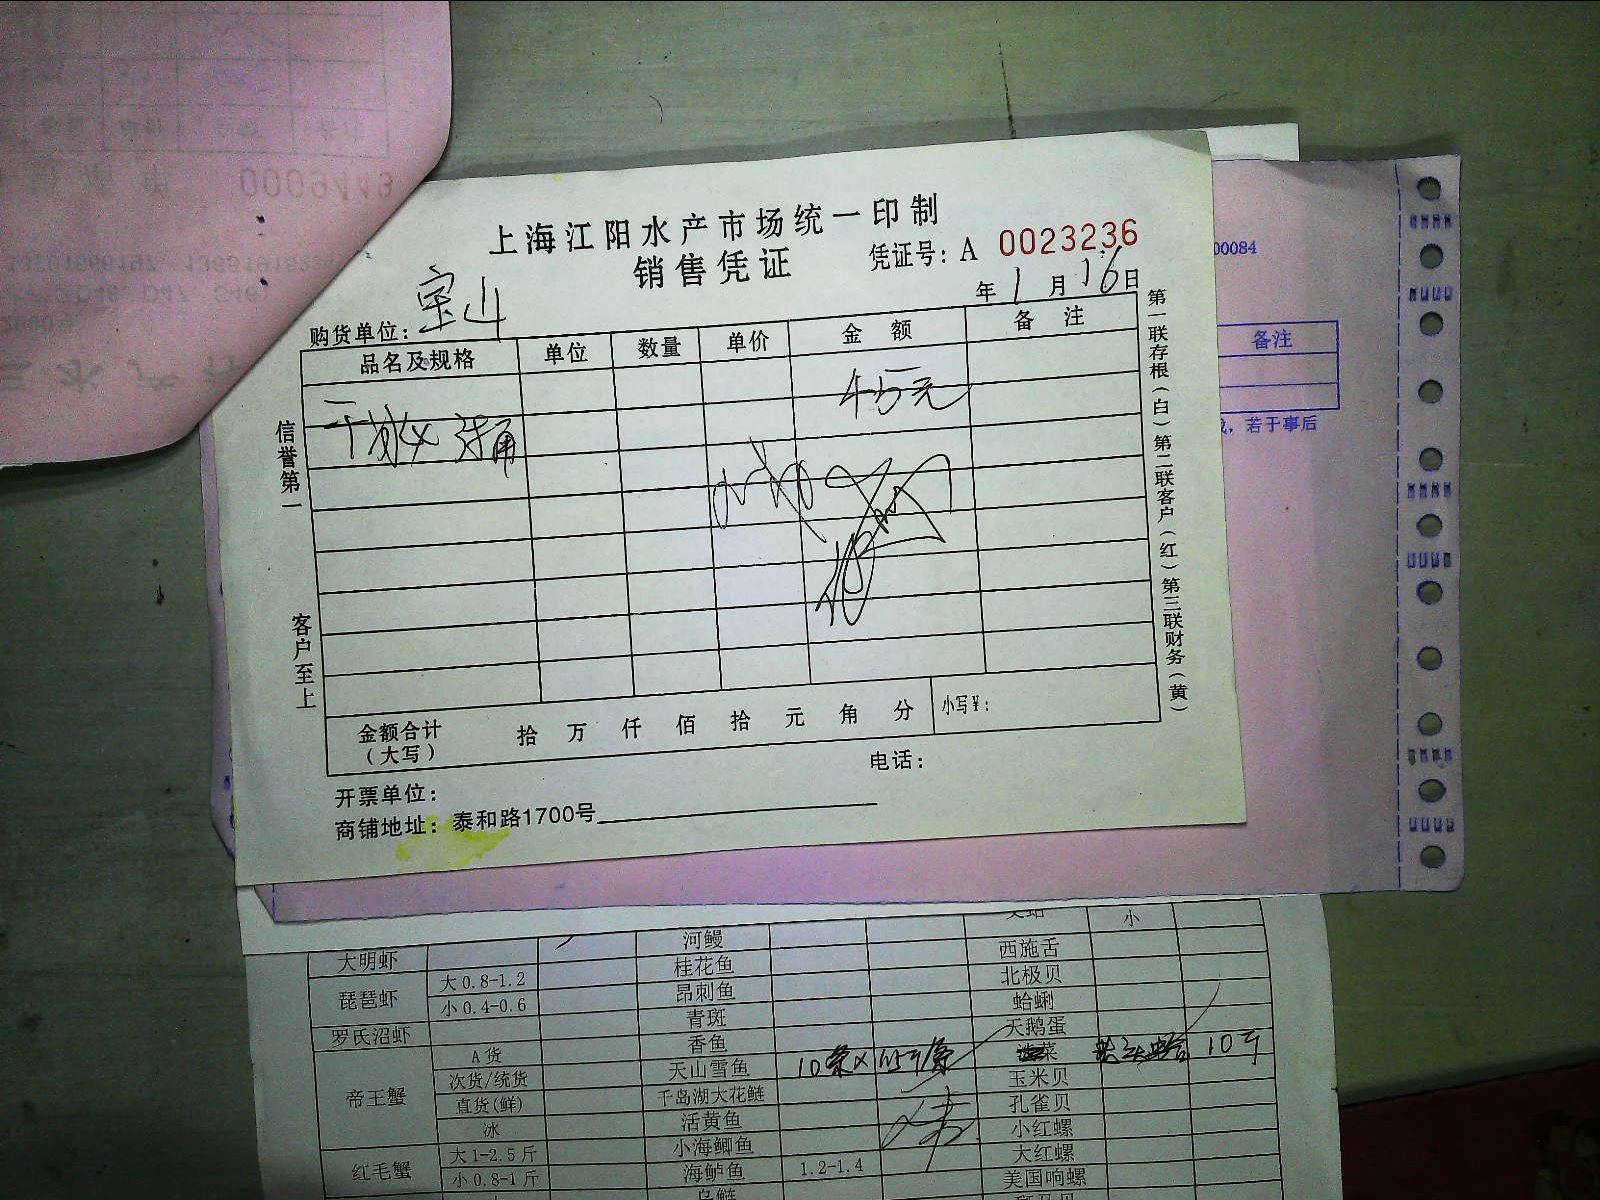 0009449
上海江阳水产市场统一印制
销售凭证
凭证号：A 0023236
年 1 月 16 日
购货单位：宝山
品名及规格 单位 数量 单价 金额 备注
信誉第一
客户至上
金额合计（大写） 拾 万 仟 佰 拾 元 角 分 小写￥：
开票单位： 电话：
商铺地址：泰和路1700号
第一联存根（白）第二联客户（红）第三联财务（黄）
00084
备注
，若于事后
小
大明虾 河鳗 西施舌
琵琶虾 大0.8-1.2 桂花鱼 北极贝
小0.4-0.6 昂刺鱼 蛤蜊
罗氏沼虾 青斑 天鹅蛋
帝王蟹 A货 香鱼 菜 10斤
次货/统货 天山雪鱼 10条× 玉米贝
直货(鲜) 千岛湖大花鲢 孔雀贝
冰 活黄鱼 小红螺
红毛蟹 大1-2.5斤 小海鲫鱼 大红螺
小0.8-1斤 海鲈鱼 1.2-1.4 美国响螺
乌鲢